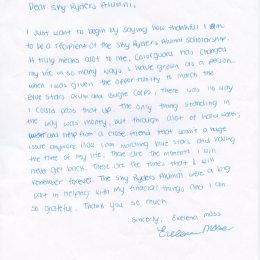 Dear Sky Ryders Alumni,
I Just want to begin by saying how thankful I am
to be a recipient of the Sky Ryders Alumni Scholarship.
It truly means alot to me. Colorguard has changed
my life in so many ways. I have grown as a person.
when I was given the opportunity to march the
Blue Stars Drum and Bugle Corps, There was no way
I could pass that up. The only thing standing in
the way was money, but through alot of hard work,
and help from a close friend that wasn't a huge
issue anymore. Now I am marching Blue Stars and having
the time of my life. These are the moments I will
never get back. These are the times that I will
remember forever. The Sky Ryders Alumni were a big
part in helping with my financial things, and I am
so grateful. Thank you so much.
Sincerely, Exelena Moss
Exelena Moss